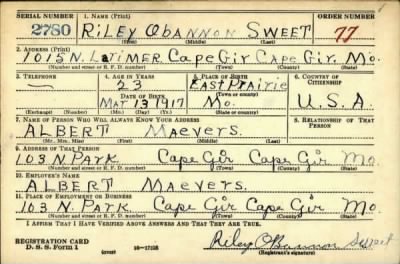 SERIAL NUMBER 1. NAME (Print) ORDER NUMBER
2780 RILEY OBANNON SWEET 77
(First) (Middle) (Last)
2. ADDRESS (Print)
1015 N. LATIMER Cape Gir Cape Gir. Mo.
(Number and street or R. F. D. number) (Town) (County) (State)
3. TELEPHONE 4. AGE IN YEARS 5. PLACE OF BIRTH 6. COUNTRY OF CITIZENSHIP
— 23 East Prairie
DATE OF BIRTH (Town or county)
MAR 13 1917 Mo. U.S.A.
(Exchange) (Number) (Mo.) (Day) (Yr.) (State or country)
7. NAME OF PERSON WHO WILL ALWAYS KNOW YOUR ADDRESS 8. RELATIONSHIP OF THAT PERSON
ALBERT Maevers
(Mr., Mrs., Miss) (First) (Middle) (Last)
9. ADDRESS OF THAT PERSON
103 N. PARK Cape Gir Cape Gir Mo.
(Number and street or R. F. D. number) (Town) (County) (State)
10. EMPLOYER'S NAME
ALBERT Maevers.
11. PLACE OF EMPLOYMENT OR BUSINESS
103 N. PARK Cape Gir Cape Gir Mo.
(Number and street or R. F. D. number) (Town) (County) (State)
I AFFIRM THAT I HAVE VERIFIED ABOVE ANSWERS AND THAT THEY ARE TRUE.
REGISTRATION CARD
D. S. S. Form 1 (over) Riley OBannon Sweet
(Registrant's signature)